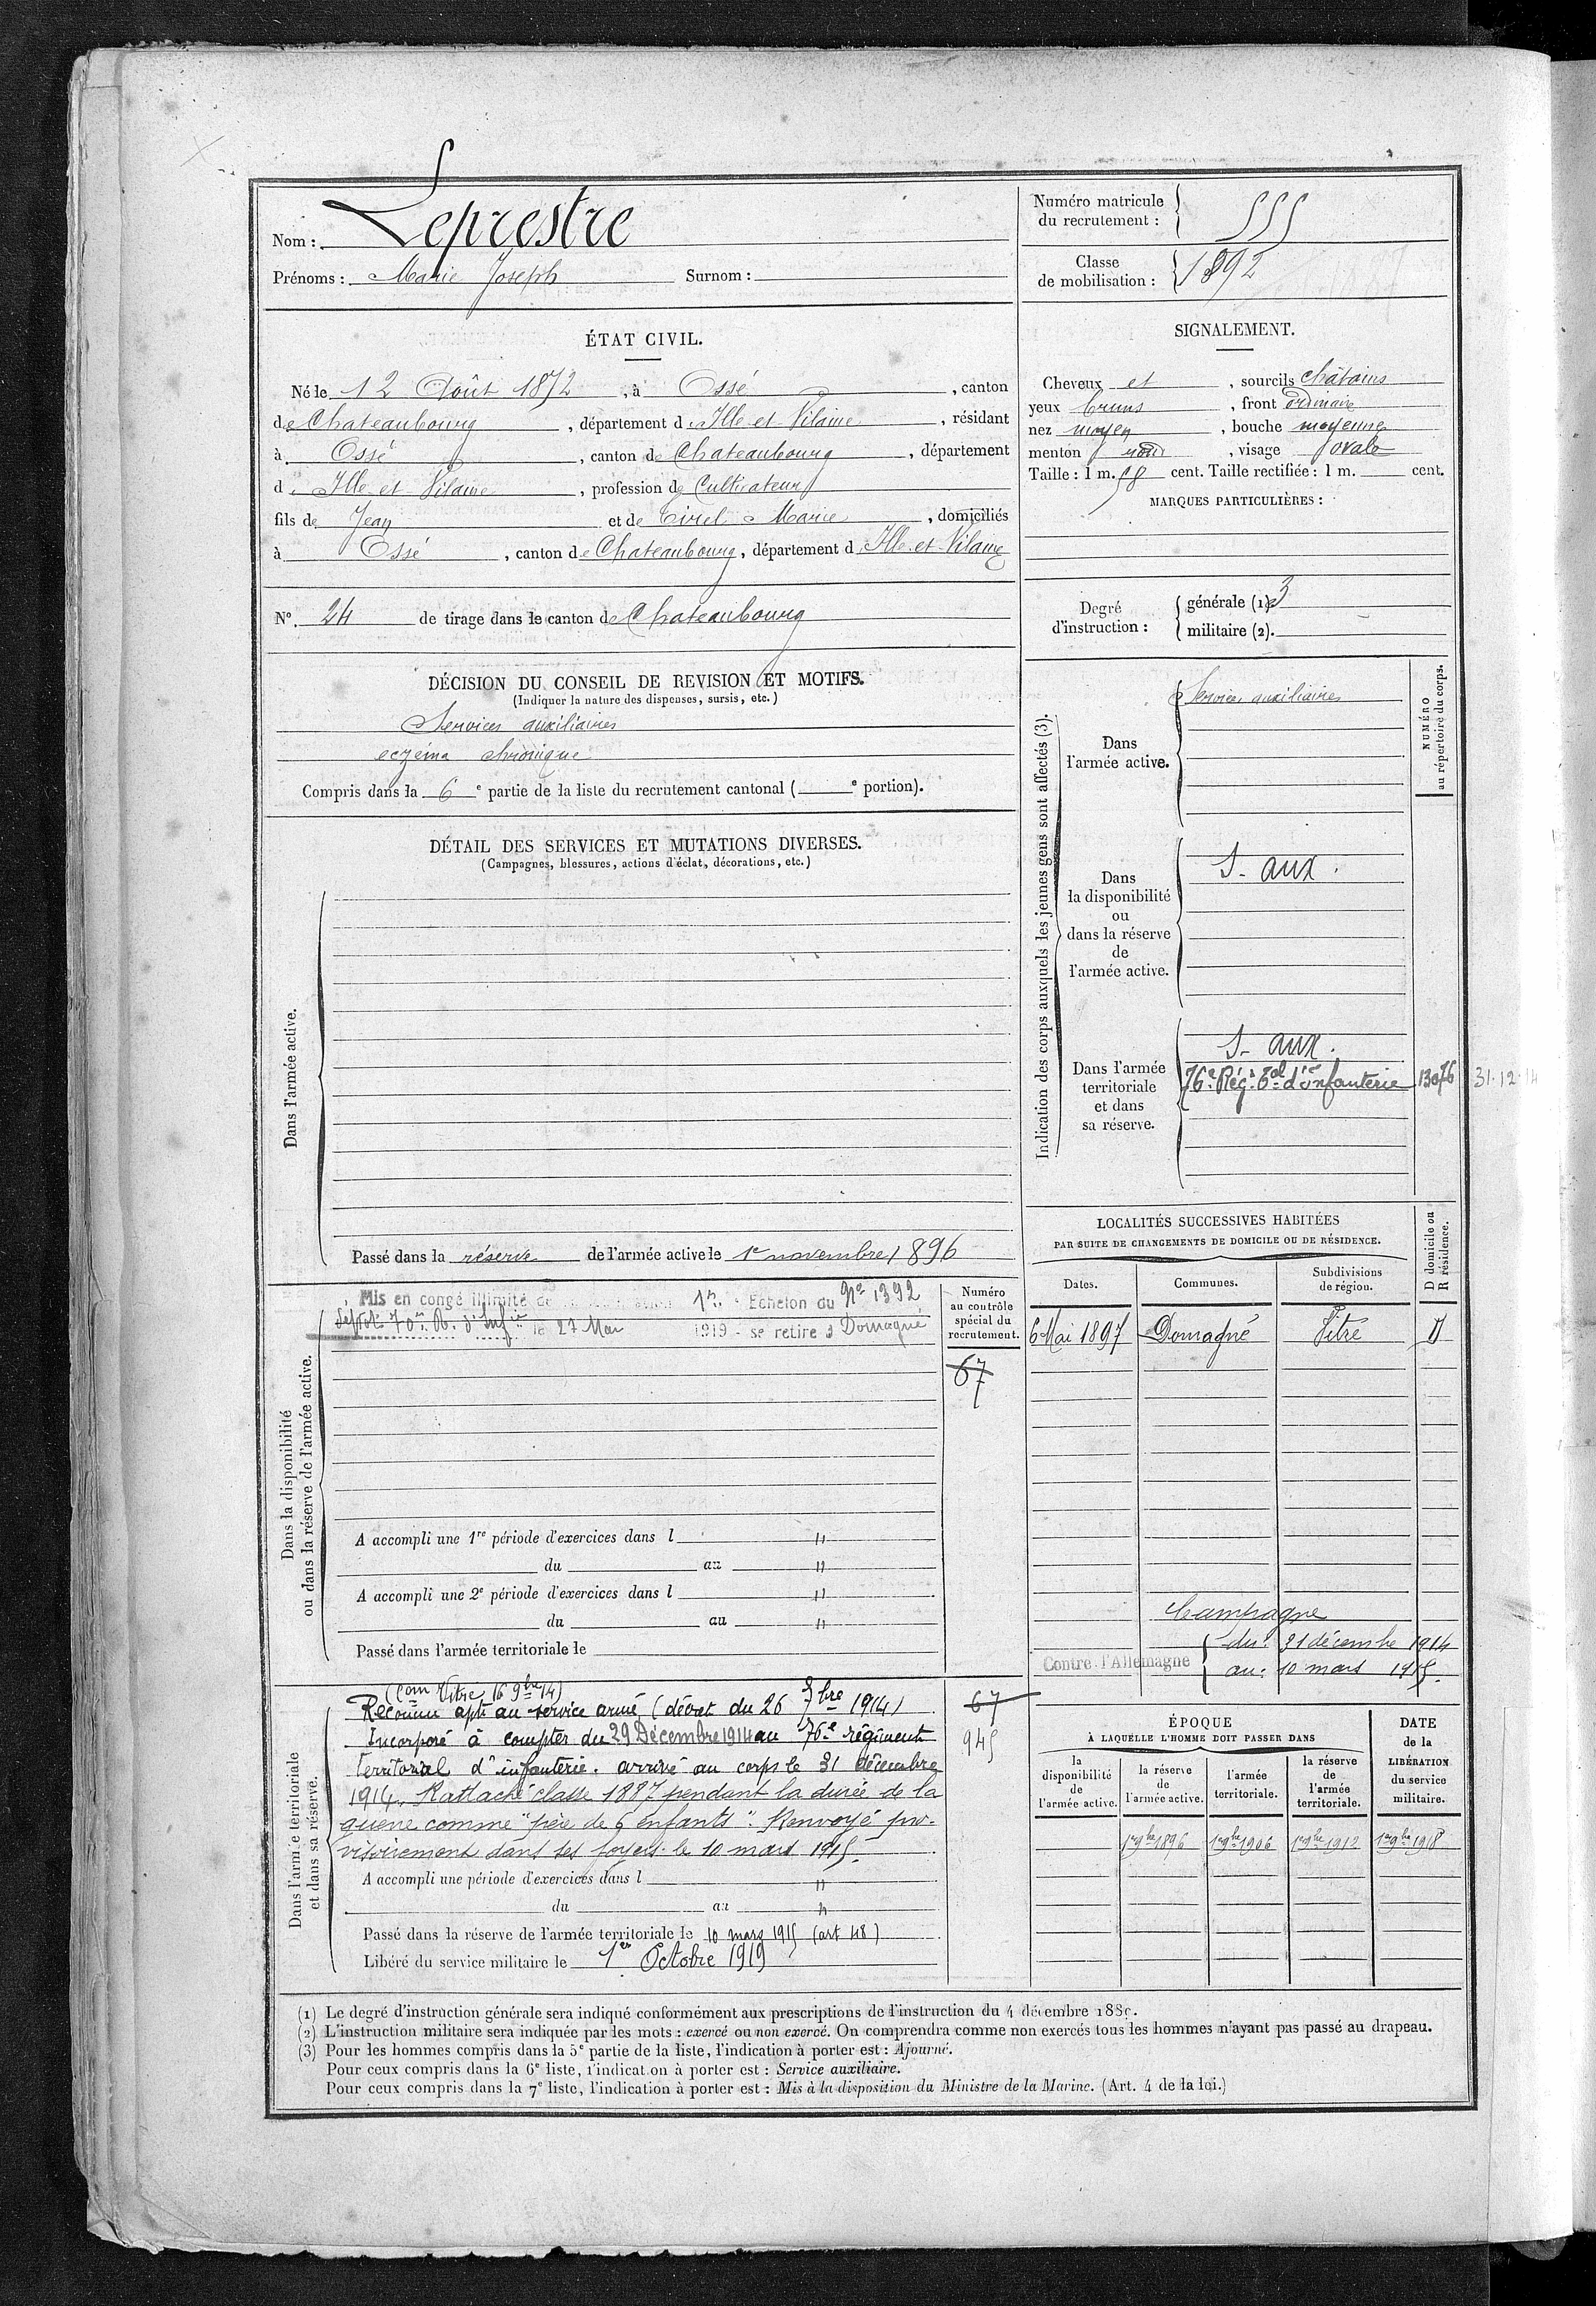 Nom : Leprestre
Prénoms : Marie Joseph Surnom :
Numéro matricule du recrutement : 555
Classe de mobilisation : 1892
ÉTAT CIVIL.
Né le 12 Août 1872, à Ossé, canton
de Chateaubourg, département d'Ille et Vilaine, résidant
à Ossé, canton de Chateaubourg, département
d'Ille et Vilaine, profession de Cultivateur
fils de Jean et de Tirel Marie, domiciliés
à Ossé, canton de Chateaubourg, département d'Ille et Vilaine
N°. 24 de tirage dans le canton de Chateaubourg
SIGNALEMENT.
Cheveux et, sourcils châtains
yeux bruns, front ordinaire
nez moyen, bouche moyenne
menton rond, visage ovale
Taille : 1 m. 58 cent. Taille rectifiée : 1 m. cent.
MARQUES PARTICULIÈRES :
Degré d'instruction : générale (1). 3
militaire (2).
DÉCISION DU CONSEIL DE REVISION ET MOTIFS.
(Indiquer la nature des dispenses, sursis, etc.)
Services auxiliaires
eczéma chronique
Compris dans la 6e partie de la liste du recrutement cantonal ( e portion).
DÉTAIL DES SERVICES ET MUTATIONS DIVERSES.
(Campagnes, blessures, actions d'éclat, décorations, etc.)
Dans l'armée active.
Passé dans la réserve de l'armée active le 1e novembre 1896
Indication des corps auxquels les jeunes gens sont affectés (3).
NUMÉRO au répertoire du corps.
Dans l'armée active.
Services auxiliaires
Dans la disponibilité ou dans la réserve de l'armée active.
S. aux.
Dans l'armée territoriale et dans sa réserve.
S. aux.
76e Rég. Tal d'infanterie 13076 31.12.14
Dans la disponibilité ou dans la réserve de l'armée active.
Mis en congé illimité de 1er Echelon du No 1392
Dépôt 70e Rt. d'Infie le 27 Mai 1919 - se retire à Domagné
Numéro au contrôle spécial du recrutement.
67
A accompli une 1re période d'exercices dans l "
du au "
A accompli une 2e période d'exercices dans l "
du au "
Passé dans l'armée territoriale le
LOCALITÉS SUCCESSIVES HABITÉES
PAR SUITE DE CHANGEMENTS DE DOMICILE OU DE RÉSIDENCE.
Dates. Communes. Subdivisions de région. D domicile ou R résidence.
6 Mai 1897 Domagné Vitré D
Campagne
Contre l'Allemagne du : 31 décembre 1914
au : 10 mars 1915.
Dans l'armée territoriale et dans sa réserve.
(Com Vitré 16 9bre 14)
Reconnu apte au service armé (décret du 26 7bre 1914) 67
Incorporé à compter du 29 Décembre 1914 au 76e régiment 945
territorial d'infanterie. arrivé au corps le 31 décembre
1914. Rattaché classe 1887 pendant la durée de la
guerre comme "père de 6 enfants". Renvoyé pro-
visoirement dans ses foyers le 10 mars 1915.
A accompli une période d'exercices dans l "
du au "
Passé dans la réserve de l'armée territoriale le 10 mars 1915 (art 48)
Libéré du service militaire le 1er Octobre 1919
ÉPOQUE
À LAQUELLE L'HOMME DOIT PASSER DANS
la disponibilité de l'armée active. la réserve de l'armée active. l'armée territoriale. la réserve de l'armée territoriale.
DATE de la LIBÉRATION du service militaire.
1er 9bre 1896 1er 9bre 1906 1er 9bre 1912 1er 9bre 1918
(1) Le degré d'instruction générale sera indiqué conformément aux prescriptions de l'instruction du 4 décembre 1889.
(2) L'instruction militaire sera indiquée par les mots : exercé ou non exercé. On comprendra comme non exercés tous les hommes n'ayant pas passé au drapeau.
(3) Pour les hommes compris dans la 5e partie de la liste, l'indication à porter est : Ajourné.
Pour ceux compris dans la 6e liste, l'indication à porter est : Service auxiliaire.
Pour ceux compris dans la 7e liste, l'indication à porter est : Mis à la disposition du Ministre de la Marine. (Art. 4 de la loi.)